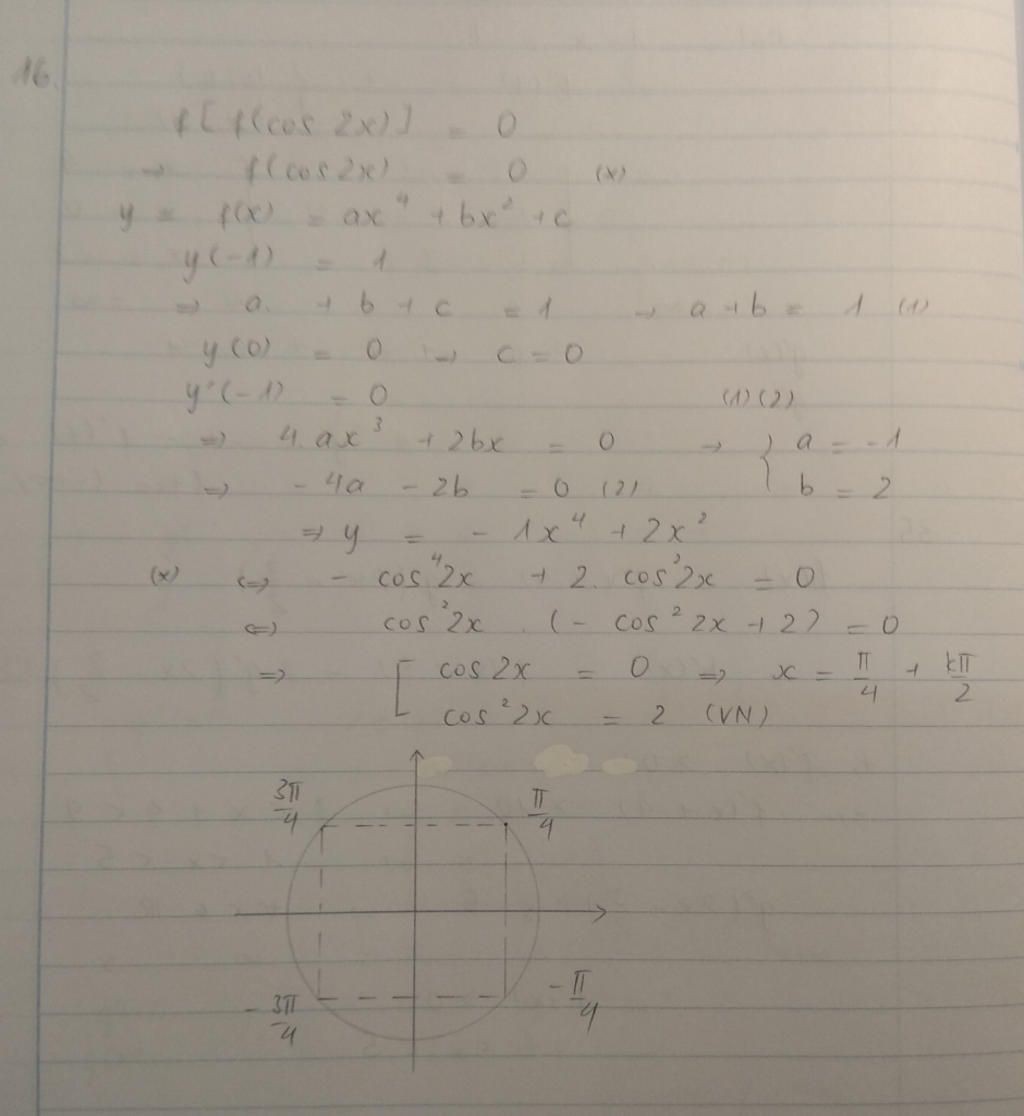 16.
f[f(cos 2x)] = 0
→ f(cos2x) = 0 (x)
y = f(x) = ax⁴ + bx² + c
y(-1) = 1
⇒ a. + b + c = 1 → a + b = 1 (1)
y(0) = 0 → c = 0
y'(-1) = 0 (1)(2)
⇒ 4.ax³ + 2bx = 0 → { a = -1
⇒ -4a - 2b = 0 (2) b = 2
⇒ y = - 1x⁴ + 2x²
(x) ⇔ - cos⁴2x + 2. cos²2x = 0
⇔ cos²2x . (- cos² 2x + 2) = 0
⇒ [ cos2x = 0 ⇒ x = π/4 + kπ/2
cos²2x = 2 (VN)
3π/4 π/4
- 3π/4 - π/4